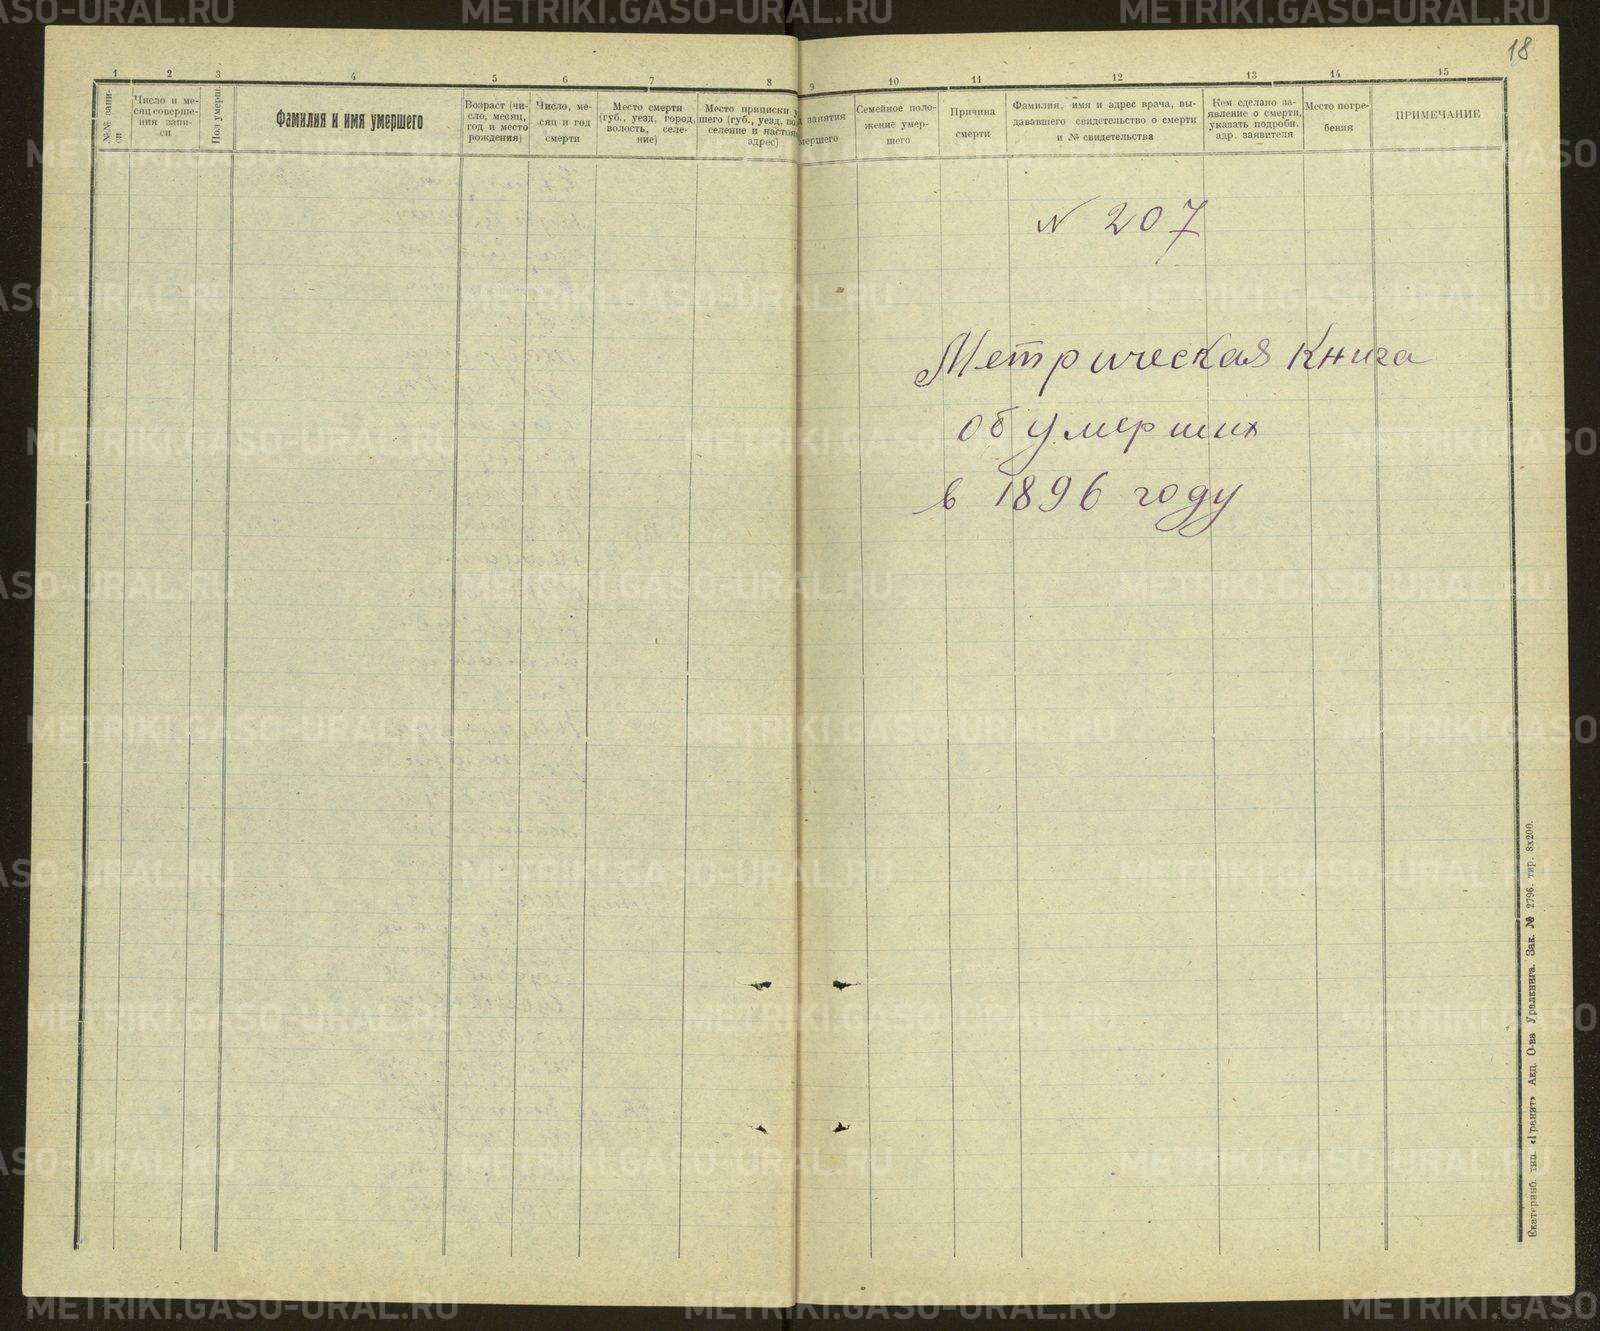 18
1 2 3 4 5 6 7 8 9 10 11 12 13 14 15
№№ запи-
си
Число и ме-
сяц соверше-
ния запи-
си
Пол умерш.
Фамилия и имя умершего
Возраст (чи-
сло, месяц,
год и место
рождения)
Число, ме-
сяц и год
смерти
Место смерти
(губ., уезд, город,
волость, селе-
ние)
Место приписки у
шего (губ., уезд, во
селение и настоя
адрес)
занятия
мершего
Семейное поло-
жение умер-
шего
Причина
смерти
Фамилия, имя и адрес врача, вы-
дававшего свидетельство о смерти
и № свидетельства
Кем сделано за-
явление о смерти,
указать подробн.
адр. заявителя
Место погре-
бения
ПРИМЕЧАНИЕ
N 207
Метрическая Книга
об умерших
в 1896 году
Екатеринб. тип. «Гранит» Акц. О-ва Уралкнига. Зак. № 2796, тир. 8х200.
METRIKI.GASO-URAL.RU